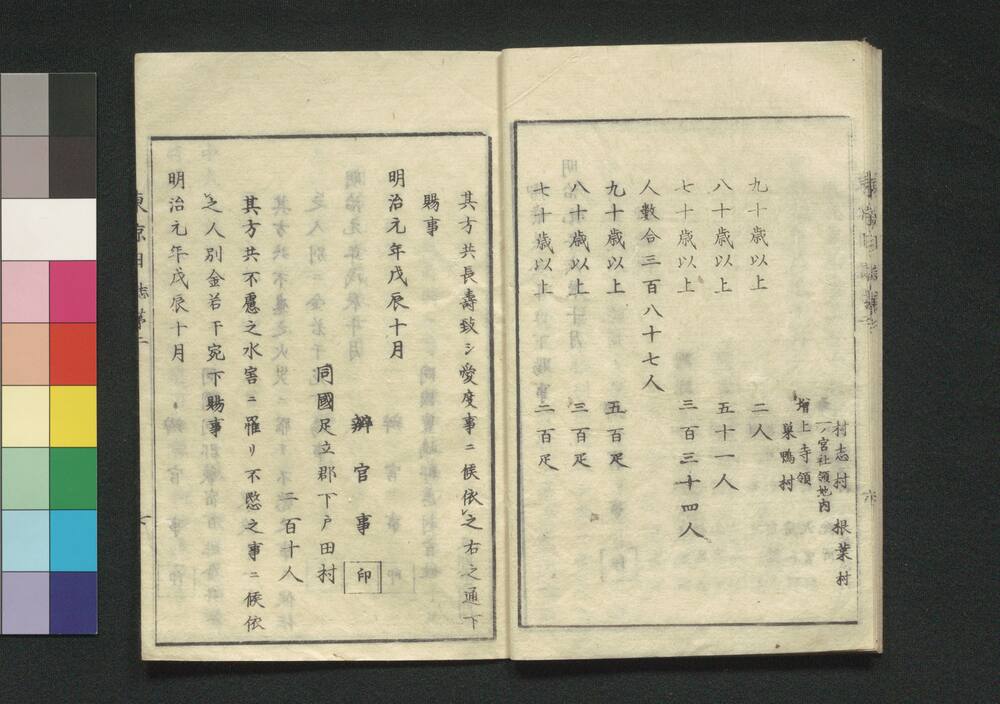 村志村　根葉村
一ノ宮社領地内
増上寺領
巣鴨村
九十歳以上　二人
八十歳以上　五十一人
七十歳以上　三百三十四人
人數合三百八十七人
九十歳以上　五百疋
八十歳以上　三百疋
七十歳以上　二百疋
其方共長壽致シ愛度事ニ候依之右之通下
賜事
明治元年戊辰十月
辨官事　印
同國足立郡下戸田村
二百十人
其方共不慮之水害ニ罹リ不愍之事ニ候依
之人別金若干宛下賜事
明治元年戊辰十月
東京日誌第二